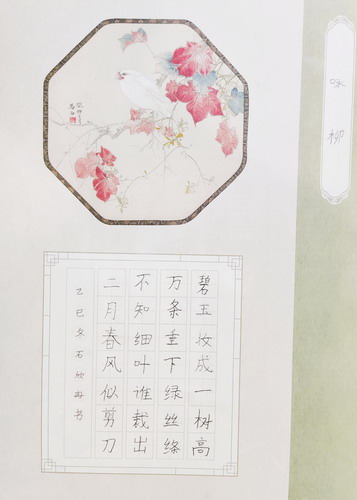 咏柳
碧玉妆成一树高
万条垂下绿丝绦
不知细叶谁裁出
二月春风似剪刀
乙巳冬石欣书